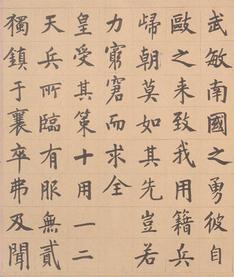 武敏南國之勇彼自
歐之来致我用籍兵
歸朝莫如其先豈若
力窮窘而求全
皇受其策十用一二
天兵所臨有服無貳
獨鎮于襄卒弗及聞